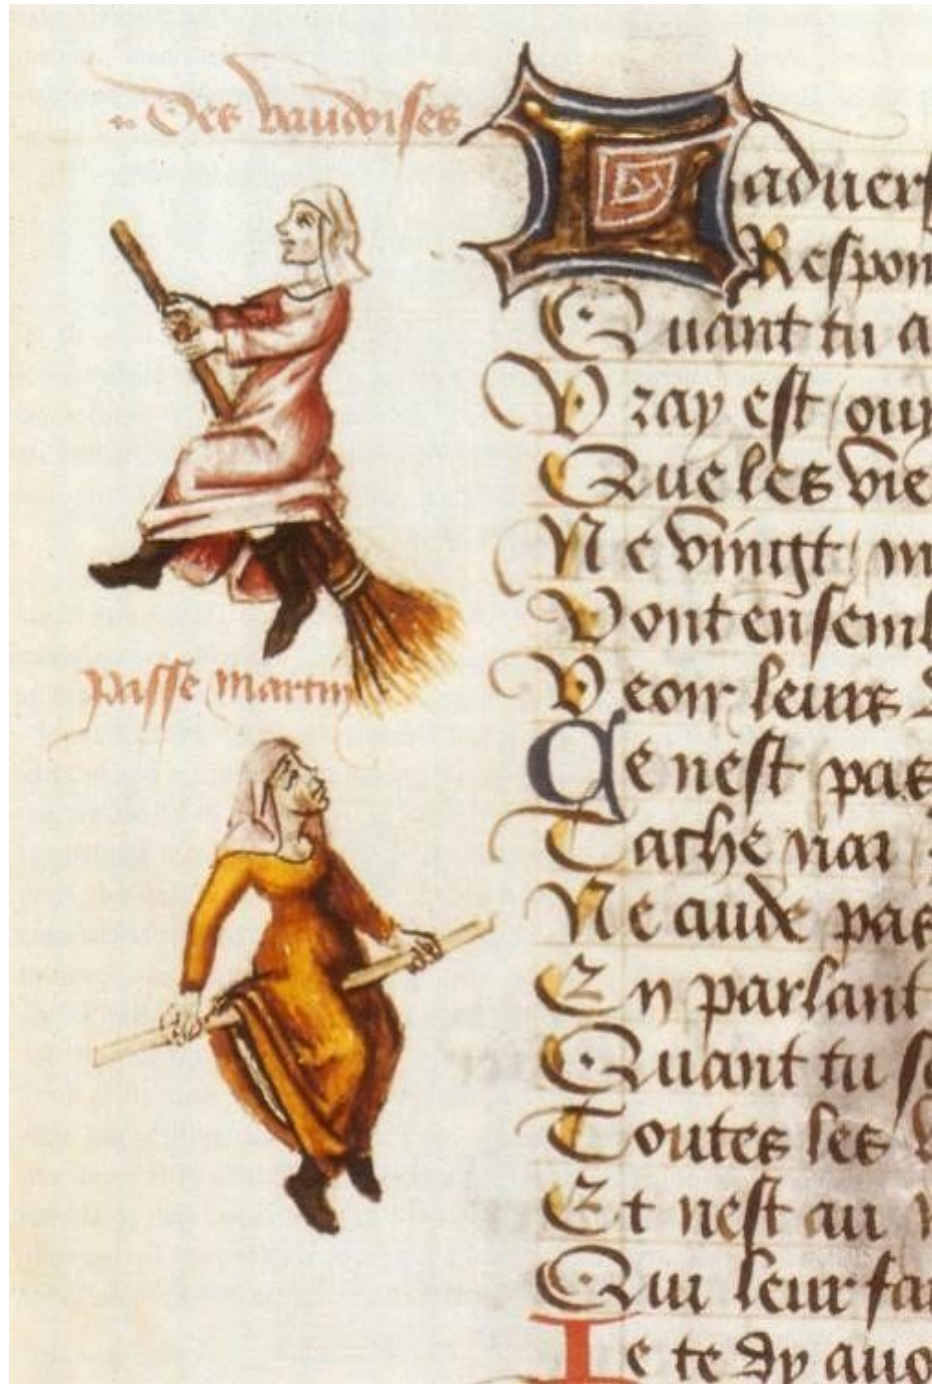 Des vaudoises
passe martin
Ladvers
Respon
Quant tu a
Vray est / ouy
Que les vie
Ne vingt / ne
Vont ensembl
Veoir leurs
Ce nest pas
Tache
Ne cuide pas
En parlant
Quant tu s
Toutes les
Et nest au
Qui leur fai
Je te dy avo